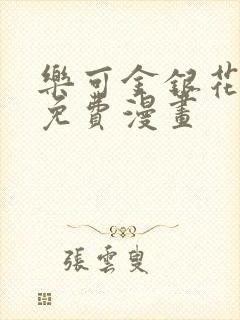 樂可金銀花
免費漫畫
張雲叟